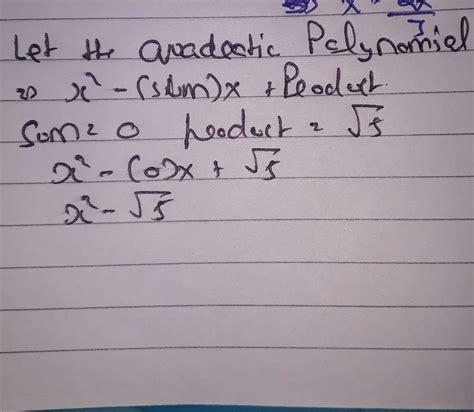 Let the Quadratic Polynomial
⇒ x² - (sum)x + Product
Sum = 0 product = √5
x² - (0)x + √5
x² - √5